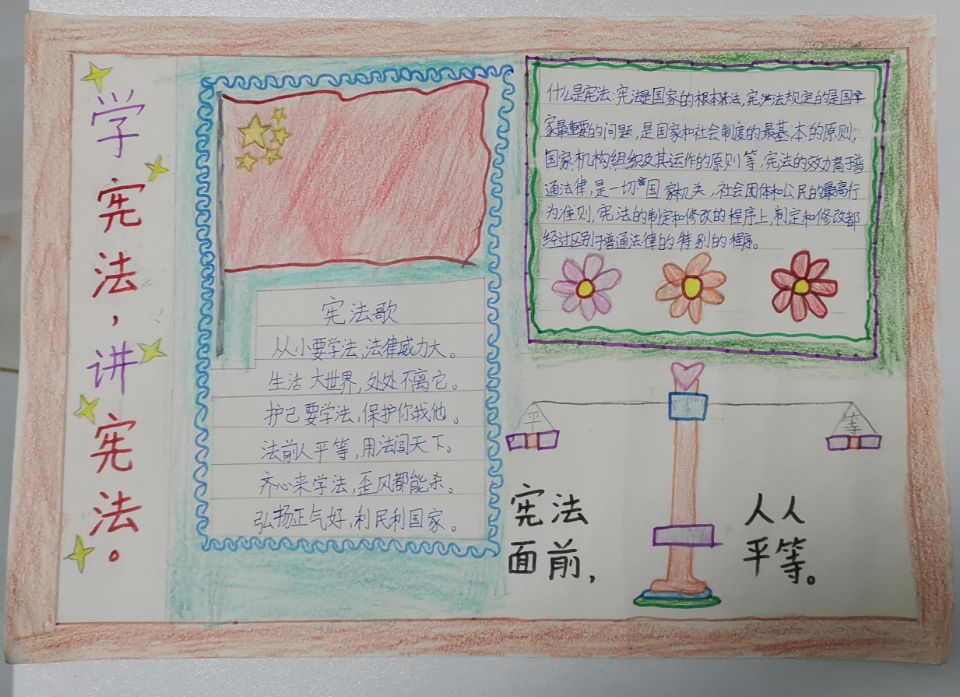 学宪法，讲宪法。
宪法歌
从小要学法，法律威力大。
生活大世界，处处不离它。
护己要学法，保护你我他。
法前人平等，用法闯天下。
齐心来学法，歪风都能杀。
弘扬正气好，利民利国家。
什么是宪法：宪法是国家的根本法，宪法规定的是国
家最重要的问题，是国家和社会制度的最基本的原则，
国家机构组织及其运作的原则等，宪法的效力高于普
通法律，是一切国家机关，社会团体和公民的最高行
为准则，宪法的制定和修改的程序上，制定和修改都
经过区别于普通法律的特别的程序。
平 等
宪法 人人
面前， 平等。